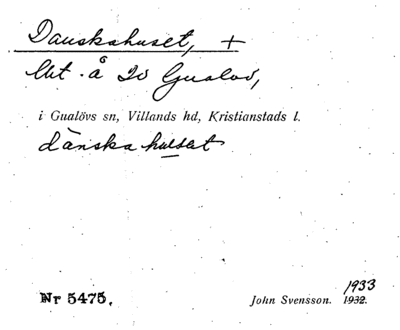 Danskahuset, +
lht. å 20 Gualöv,
i Gualövs sn, Villands hd, Kristianstads l.
dänska husset
Nr 5475.
John Svensson. 1932. 1933